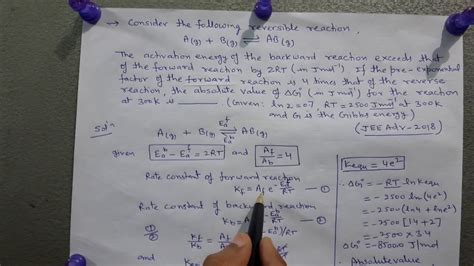 → Consider the following reversible reaction,
A(g) + B(g) ⇌ AB(g)
The activation energy of the backward reaction exceeds that
of the forward reaction by 2RT (in J mol⁻¹) If the pre-exponential
factor of the forward reaction is 4 times that of the reverse
reaction, the absolute value of ΔG° (in J mol⁻¹) for the reaction
at 300k is ____ (Given: ln 2 = 0.7, RT = 2500 J mol⁻¹ at 300k
and G is the Gibbs energy)
(JEE Adv-2018)
Solⁿ
A(g) + B(g) ⇌ AB(g)
given Eₐᵇ - Eₐᶠ = 2RT and A_f/A_b = 4
Rate constant of forward reaction
K_f = A_f e^-Eₐᶠ/RT —①
Rate constant of backward reaction
K_b = A
①
②
K_f/K_b = A_f/
Kequ = 4e²
∴ ΔG° = -RT ln Kequ
= -2500 ln(4e²)
= -2500 (ln4 + lne²)
= -2500 (1.4+2)
= -2500 × 3.4
ΔG° = -8500 J/mol
∴ Absolute value